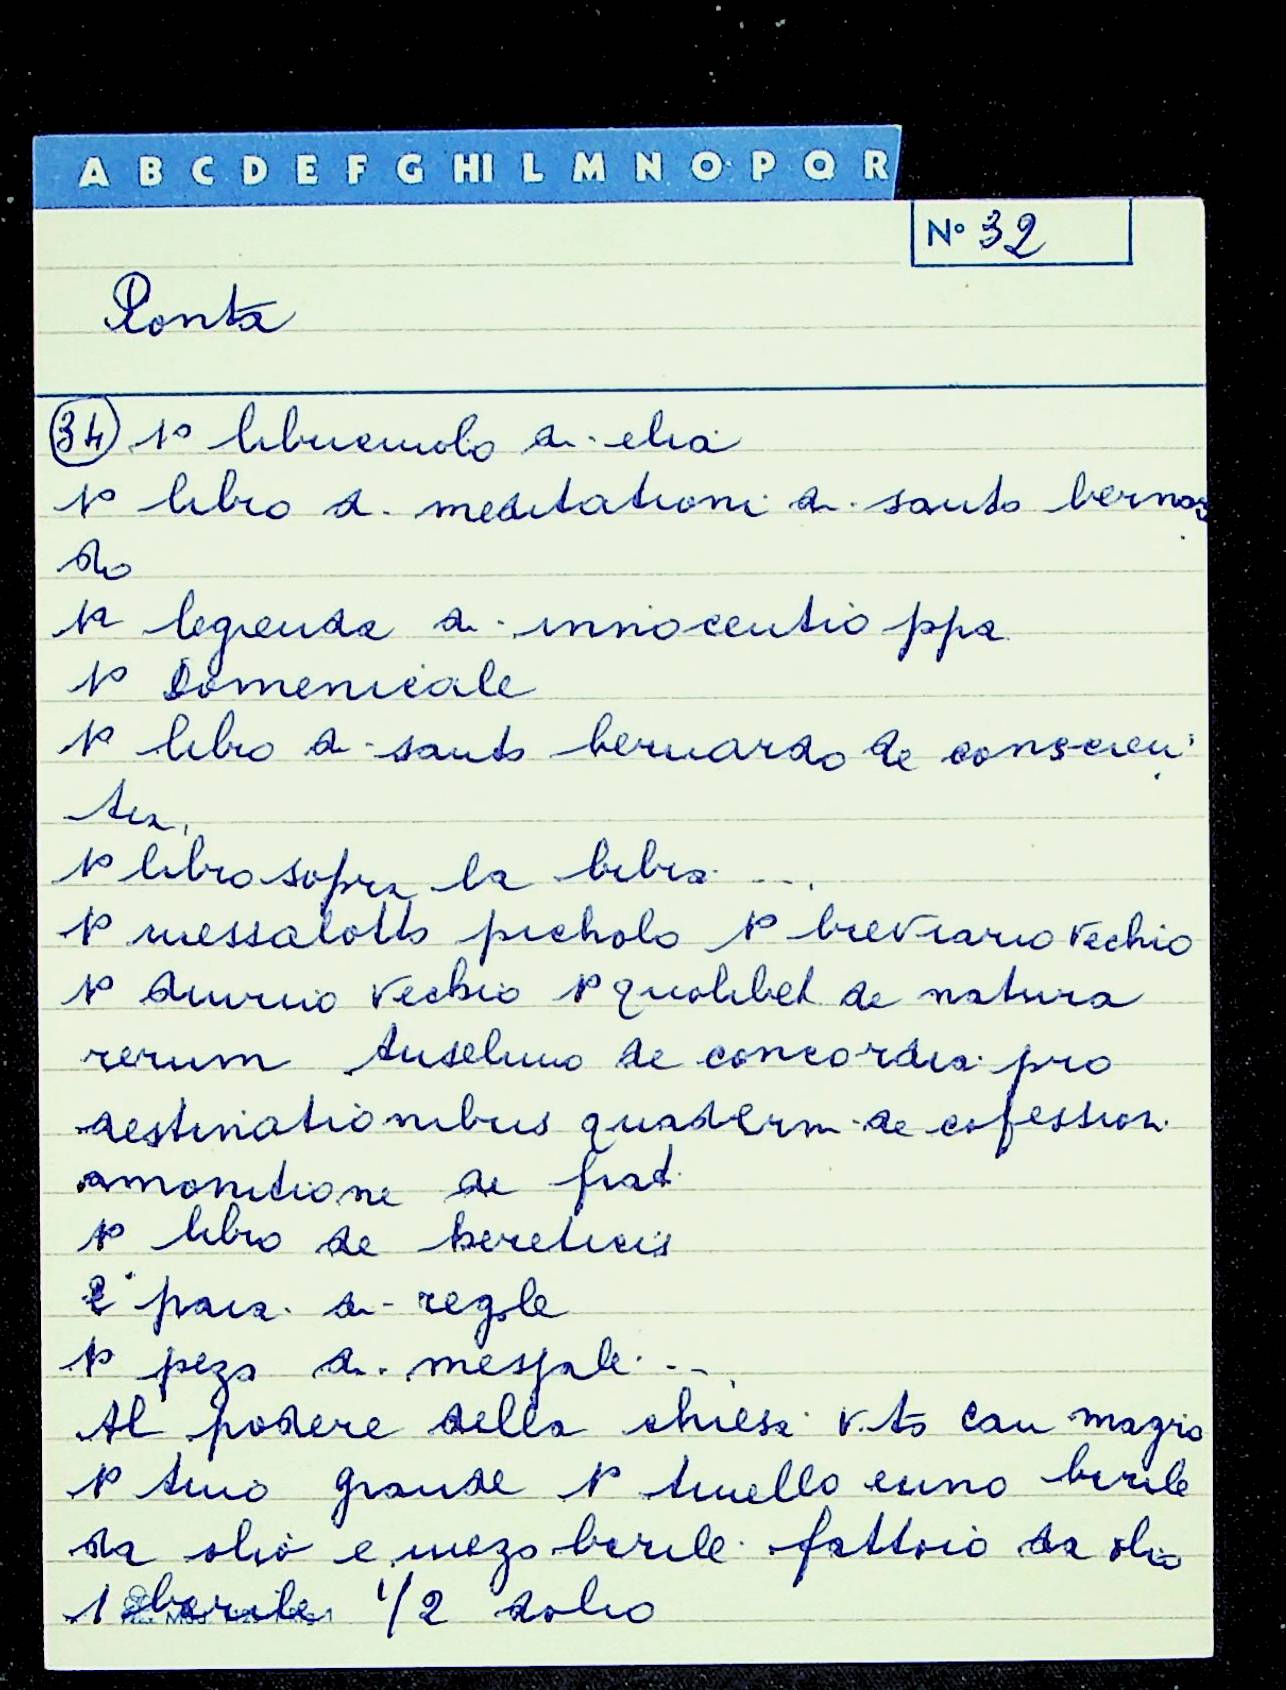 A B C D E F G HI L M N O P Q R
N° 32
Ponta
34 1° libricuolo di elia
1° libro di meditationi di santo bernar
do
1a legenda di innocentio ppa
1° Domenicale
1° libro di santo bernardo de conscien
tia.
1° libro sopra la bibia ...
1° messalotto picholo 1° breviario vechio
1° diurnio vechio 1° quolibet de natura
rerum Anselmo de concordia pro
destinationibus quaderni de cofession.
amonitione de frat.
1° libro de hereticis
2 paia di regole
1° pezo di mesale ...
Al podere della chiesa v.to can magio
1° tino grande 1° tinello e uno barile
da olio e mezo barile fattoio da olio
1 barile 1/2 dolio